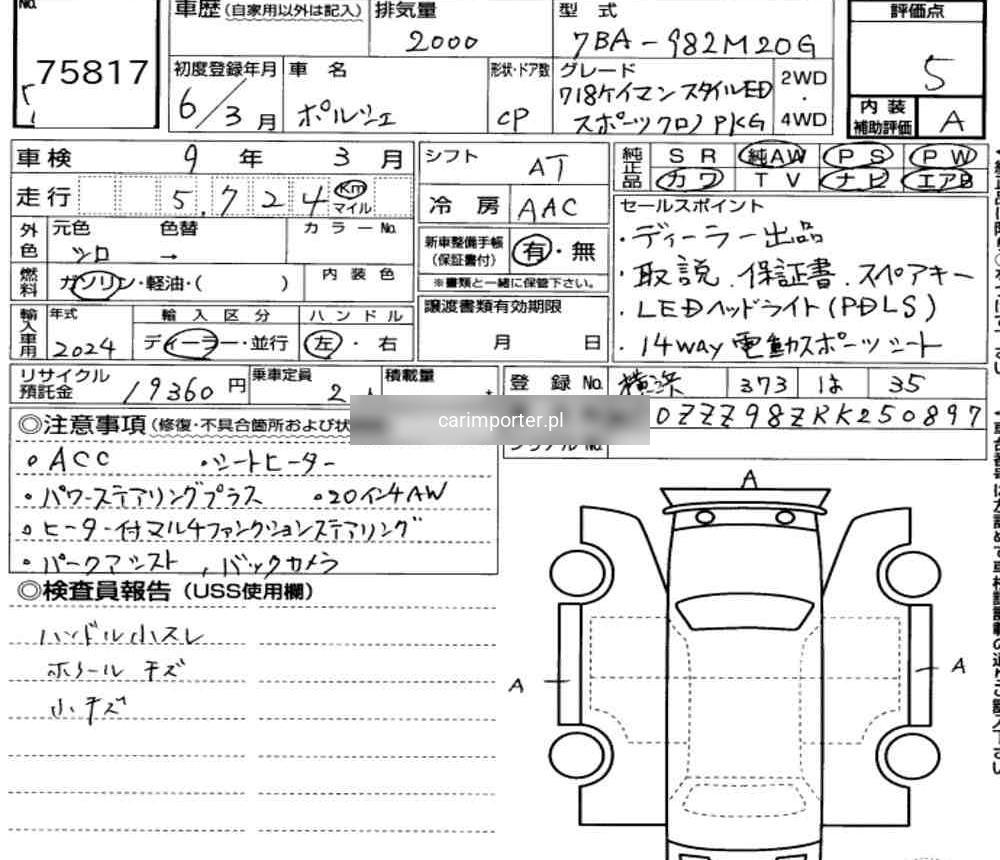 No.
75817
車歴 (自家用以外は記入)
排気量
2000
型 式
7BA-982M20G
評価点
5
内装補助評価
A
初度登録年月
6/3月
車 名
ポルシェ
形状・ドア数
CP
グレード
718ケイマン スタイルED
スポーツクロノPKG
2WD
・
4WD
車検 9年 3月
走行 5,724 Km マイル
シフト AT
冷房 AAC
純正品
SR 純AW PS PW
カワ TV ナビ エアB
外色 元色 シロ 色替 → カラーNo.
新車整備手帳(保証書付) 有・無
※書類と一緒に保管下さい。
燃料 ガソリン・軽油・( ) 内装色
譲渡書類有効期限
月 日
セールスポイント
・ディーラー出品
・取説.保証書.スペアキー
・LEDヘッドライト(PDLS)
・14way 電動スポーツシート
輸入車用
年式
2024
輸入区分
ディーラー・並行
ハンドル
左・右
リサイクル預託金 19360円
乗車定員 2人
積載量
登録No. 横浜 373 は 35
carimporter.pl
0ZZZ98ZRK250897
シリアルNo.
◎注意事項(修復・不具合箇所および状
・ACC ・シートヒーター
・パワーステアリングプラス ・20インチAW
・ヒーター付マルチファンクションステアリング
・パークアシスト,バックカメラ
◎検査員報告(USS使用欄)
ハンドル小スレ
ホイールキズ
小キズ
A
A
A